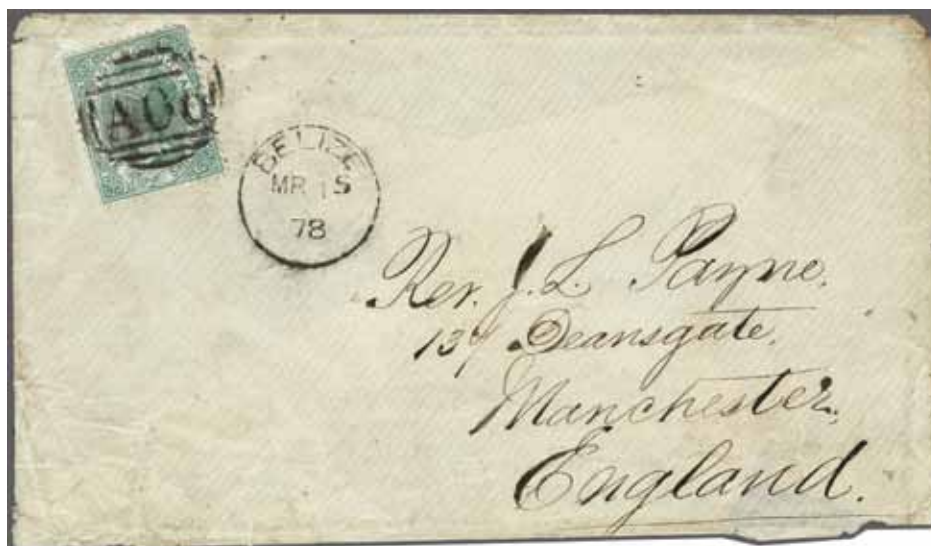 A06
BELIZE
MR 15
78
Rev. J. L. Payne.
Deansgate.
Manchester.
England.